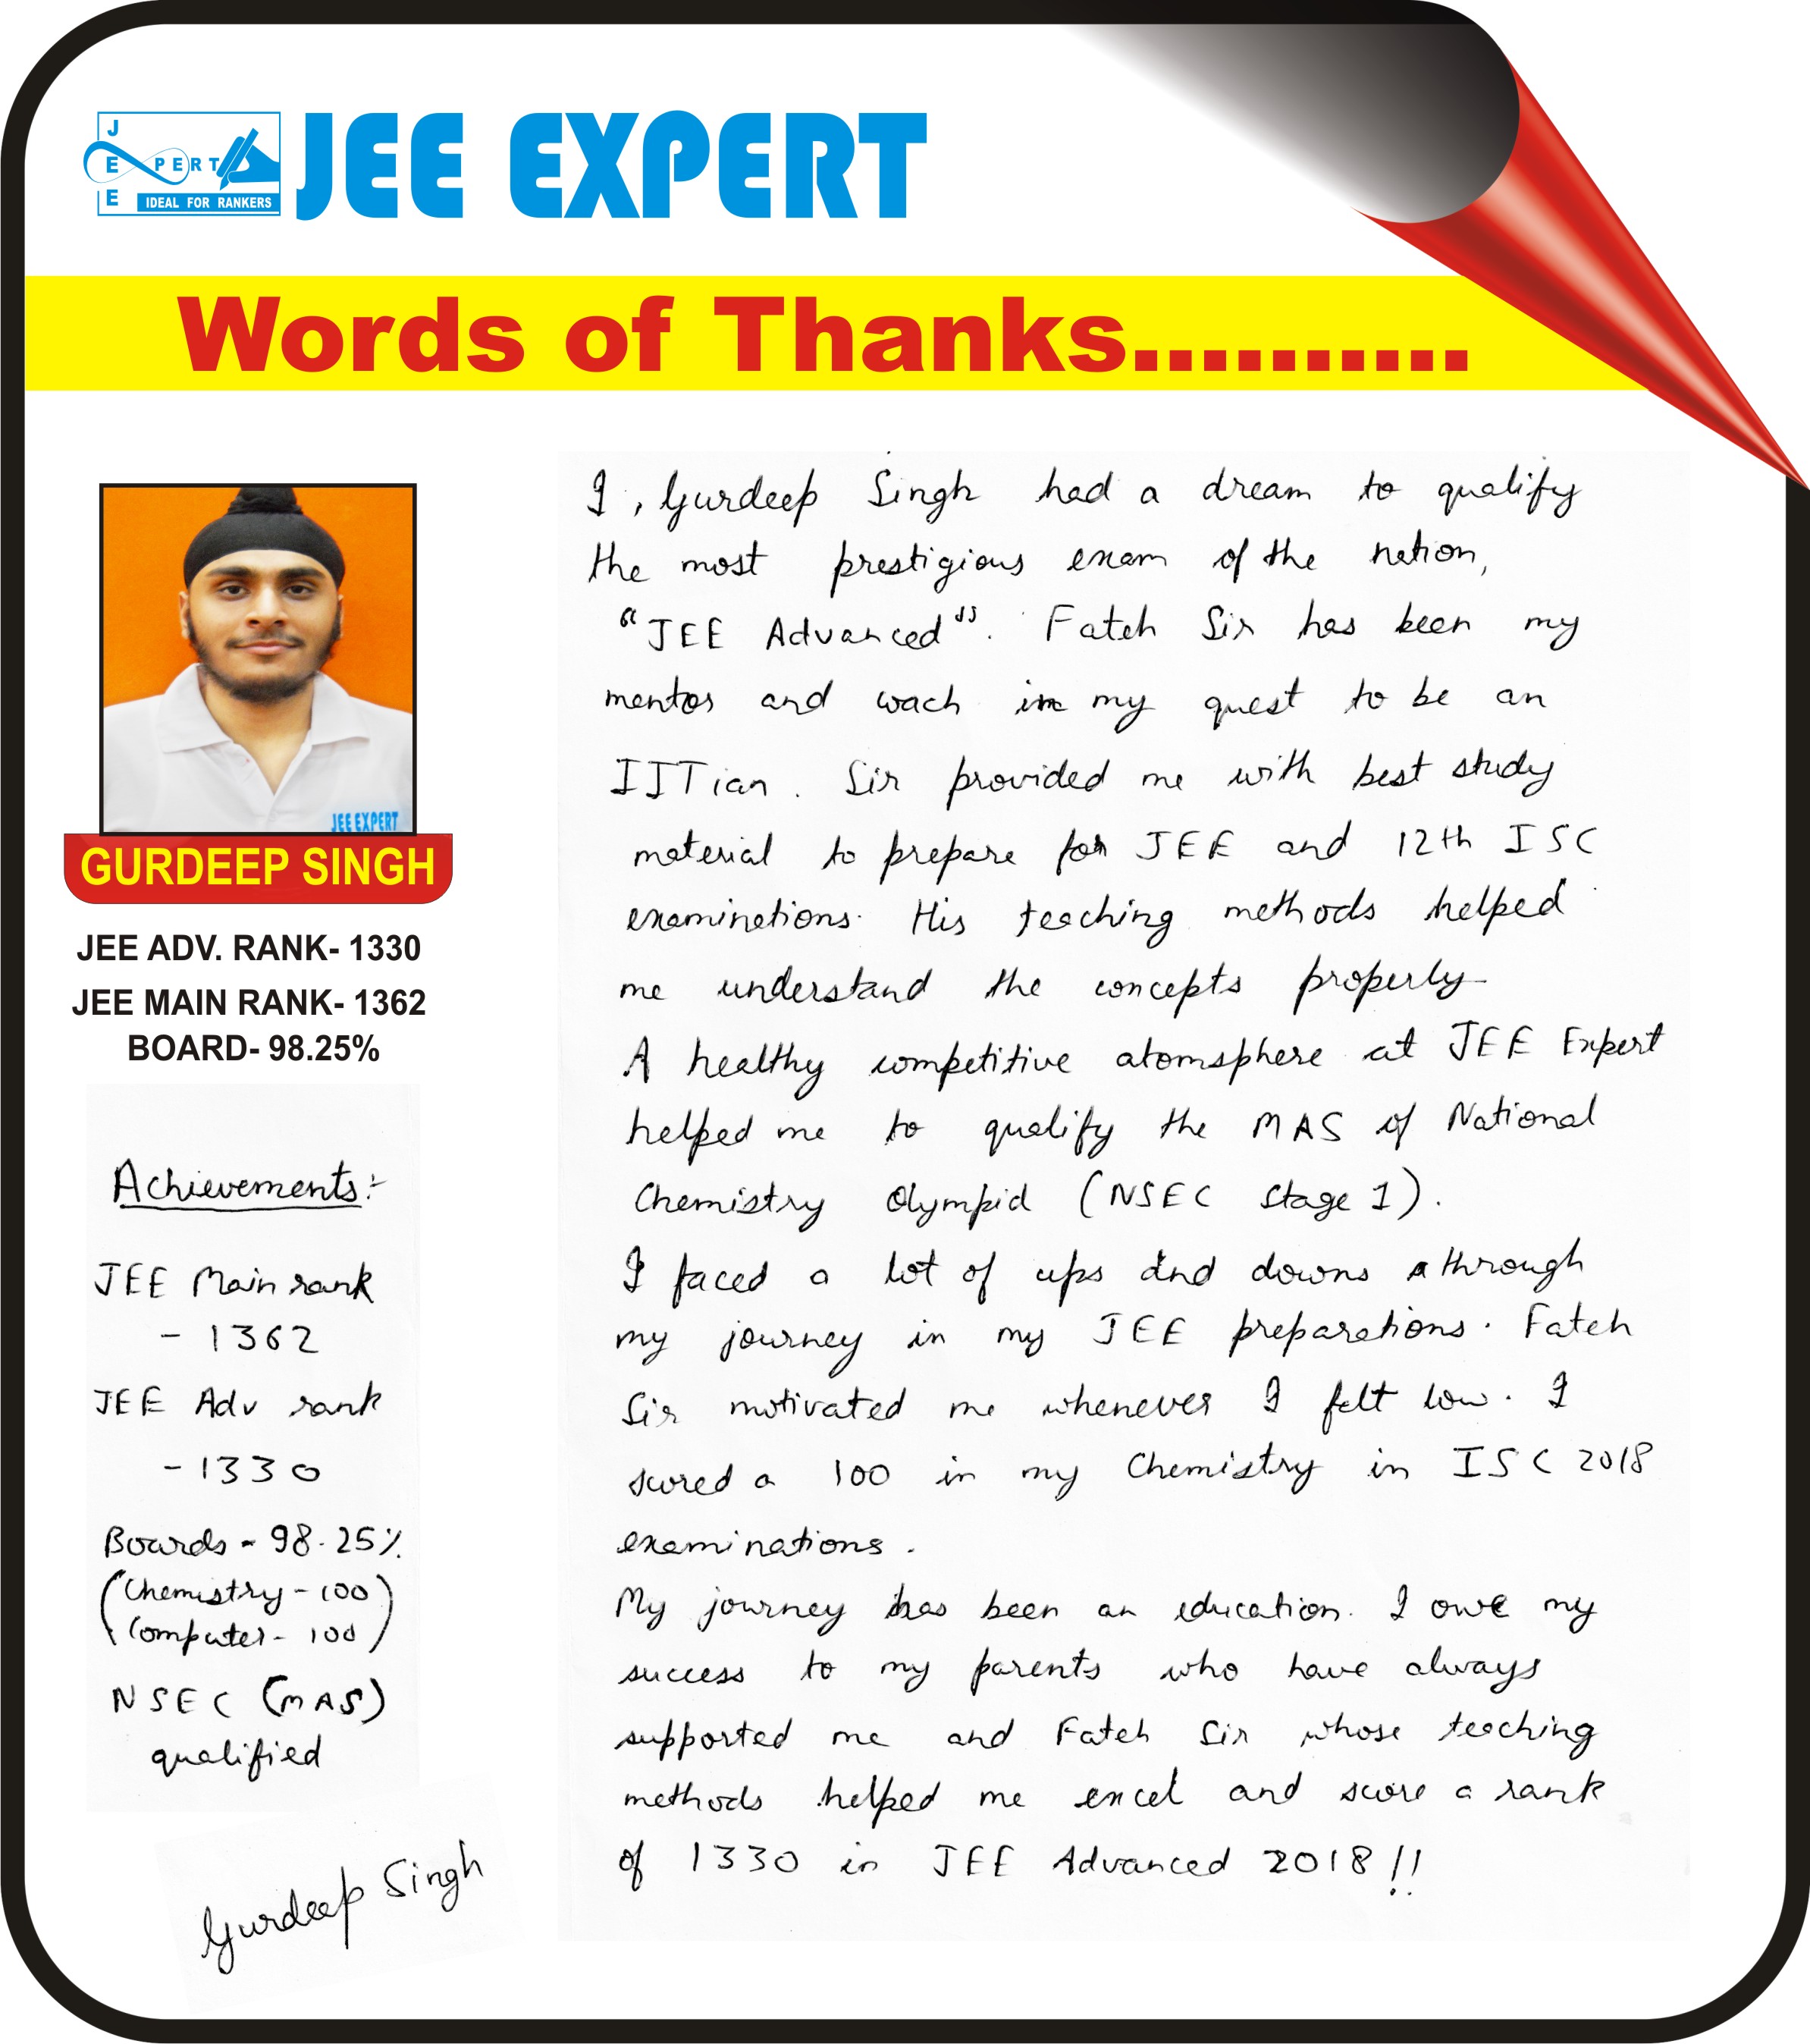 J
E PERT
E IDEAL FOR RANKERS
JEE EXPERT
Words of Thanks..........
JEE EXPERT
GURDEEP SINGH
JEE ADV. RANK- 1330
JEE MAIN RANK- 1362
BOARD- 98.25%
Achievements:-
JEE Main rank
- 1362
JEE Adv rank
- 1330
Boards - 98.25%
(Chemistry - 100
Computer - 100)
NSEC (MAS)
qualified
Gurdeep Singh
I, Gurdeep Singh had a dream to qualify
the most prestigious exam of the nation,
"JEE Advanced". Fateh Sir has been my
mentor and coach in my quest to be an
IITian. Sir provided me with best study
material to prepare for JEE and 12th ISC
examinations. His teaching methods helped
me understand the concepts properly
A healthy competitive atomsphere at JEE Expert
helped me to qualify the MAS of National
Chemistry Olympid (NSEC Stage 1).
I faced a lot of ups and downs through
my journey in my JEE preparations. Fateh
Sir motivated me whenever I felt low. I
scored a 100 in my Chemistry in ISC 2018
examinations.
My journey has been an education. I owe my
success to my parents who have always
supported me and Fateh Sir whose teaching
methods helped me excel and score a rank
of 1330 in JEE Advanced 2018!!